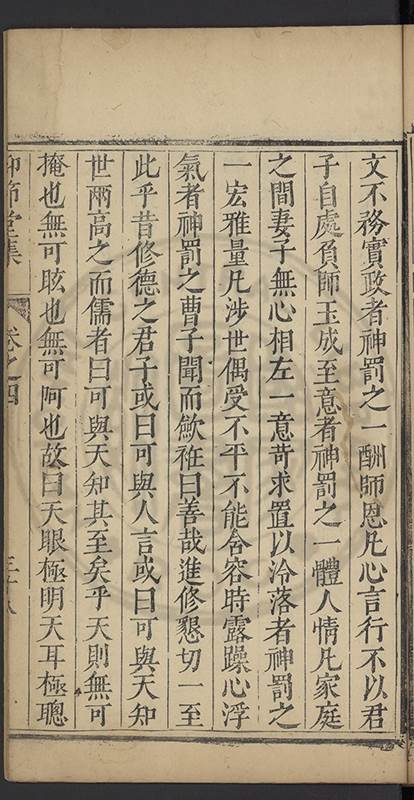 文不務實政者神罰之一酬師恩凡心言行不以君
子自處負師玉成至意者神罰之一體人情凡家庭
之間妻子無心相左一意苛求置以冷落者神罰之
一宏雅量凡涉世偶受不平不能含容時露躁心浮
氣者神罰之曹子聞而歛袵曰善哉進修懇切一至
此乎昔修德之君子或曰可與人言或曰可與天知
世兩高之而儒者曰可與天知其至矣乎天則無可
掩也無可眩也無可阿也故曰天眼極明天耳極聰
仰節堂集 卷之四 三十八